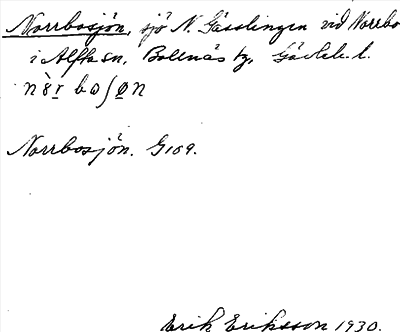 Norrbosjön, sjö N. Gässlingen vid Norrbo
i Alfta sn, Bollnäs tg, Gävleb. l.
Norrbosjön. G109.
Erik Eriksson 1930.